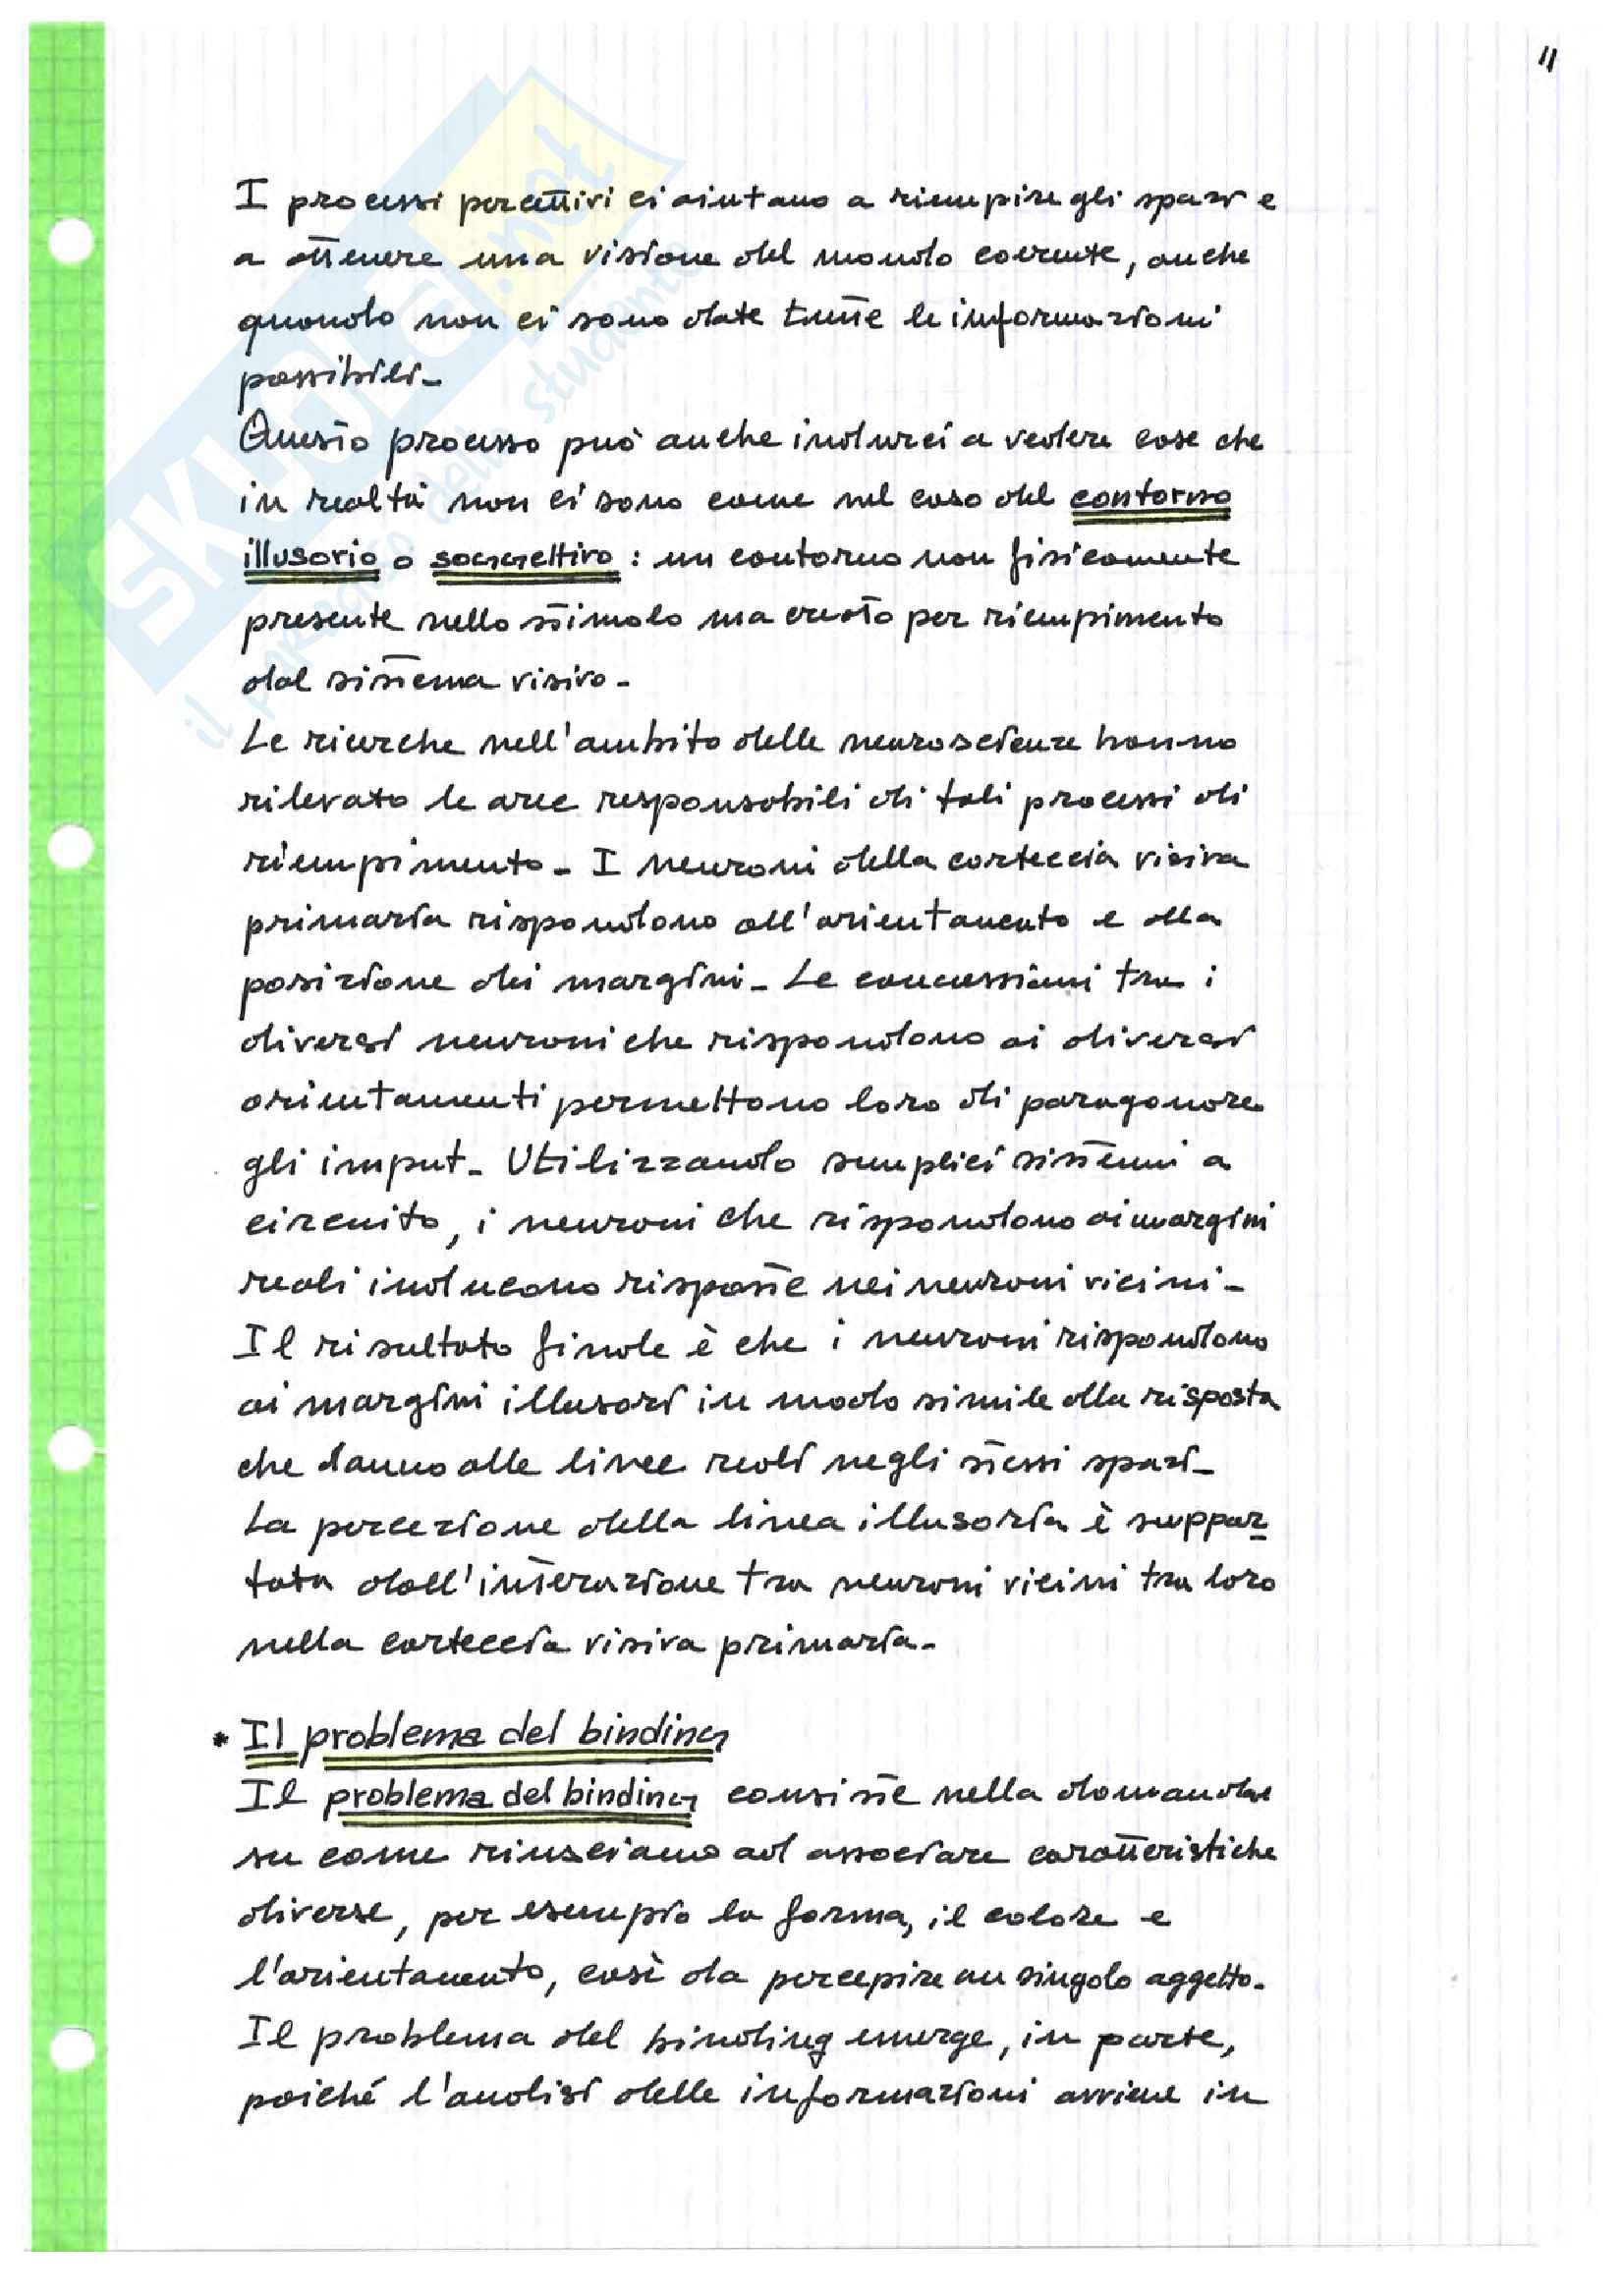 11
I processi percettivi ci aiutano a riempire gli spazi e
a ottenere una visione del mondo coerente, anche
quando non ci sono date tutte le informazioni
possibili_
Questo processo può anche indurci a vedere cose che
in realtà non ci sono come nel caso del contorno
illusorio o soggettivo : un contorno non fisicamente
presente nello stimolo ma creato per riempimento
dal sistema visivo_
Le ricerche nell'ambito delle neuroscienze hanno
rilevato le aree responsabili di tali processi di
riempimento_ I neuroni della corteccia visiva
primaria rispondono all'orientamento e alla
posizione dei margini_ Le connessioni tra i
diversi neuroni che rispondono ai diversi
orientamenti permettono loro di paragonare
gli imput_ Utilizzando semplici sistemi a
circuito, i neuroni che rispondono ai margini
reali inducono risposte nei neuroni vicini_
Il risultato finale è che i neuroni rispondono
ai margini illusori in modo simile alla risposta
che danno alle linee reali negli stessi spazi_
La percezione della linea illusoria è suppor
tata dall'interazione tra neuroni vicini tra loro
nella corteccia visiva primaria_
* Il problema del binding
Il problema del binding consiste nella domanda
su come riusciamo ad associare caratteristiche
diverse, per esempio la forma, il colore e
l'orientamento, così da percepire un singolo oggetto.
Il problema del binding emerge, in parte,
poiché l'analisi delle informazioni avviene in
SKUOLA.net
il paradiso dello studente